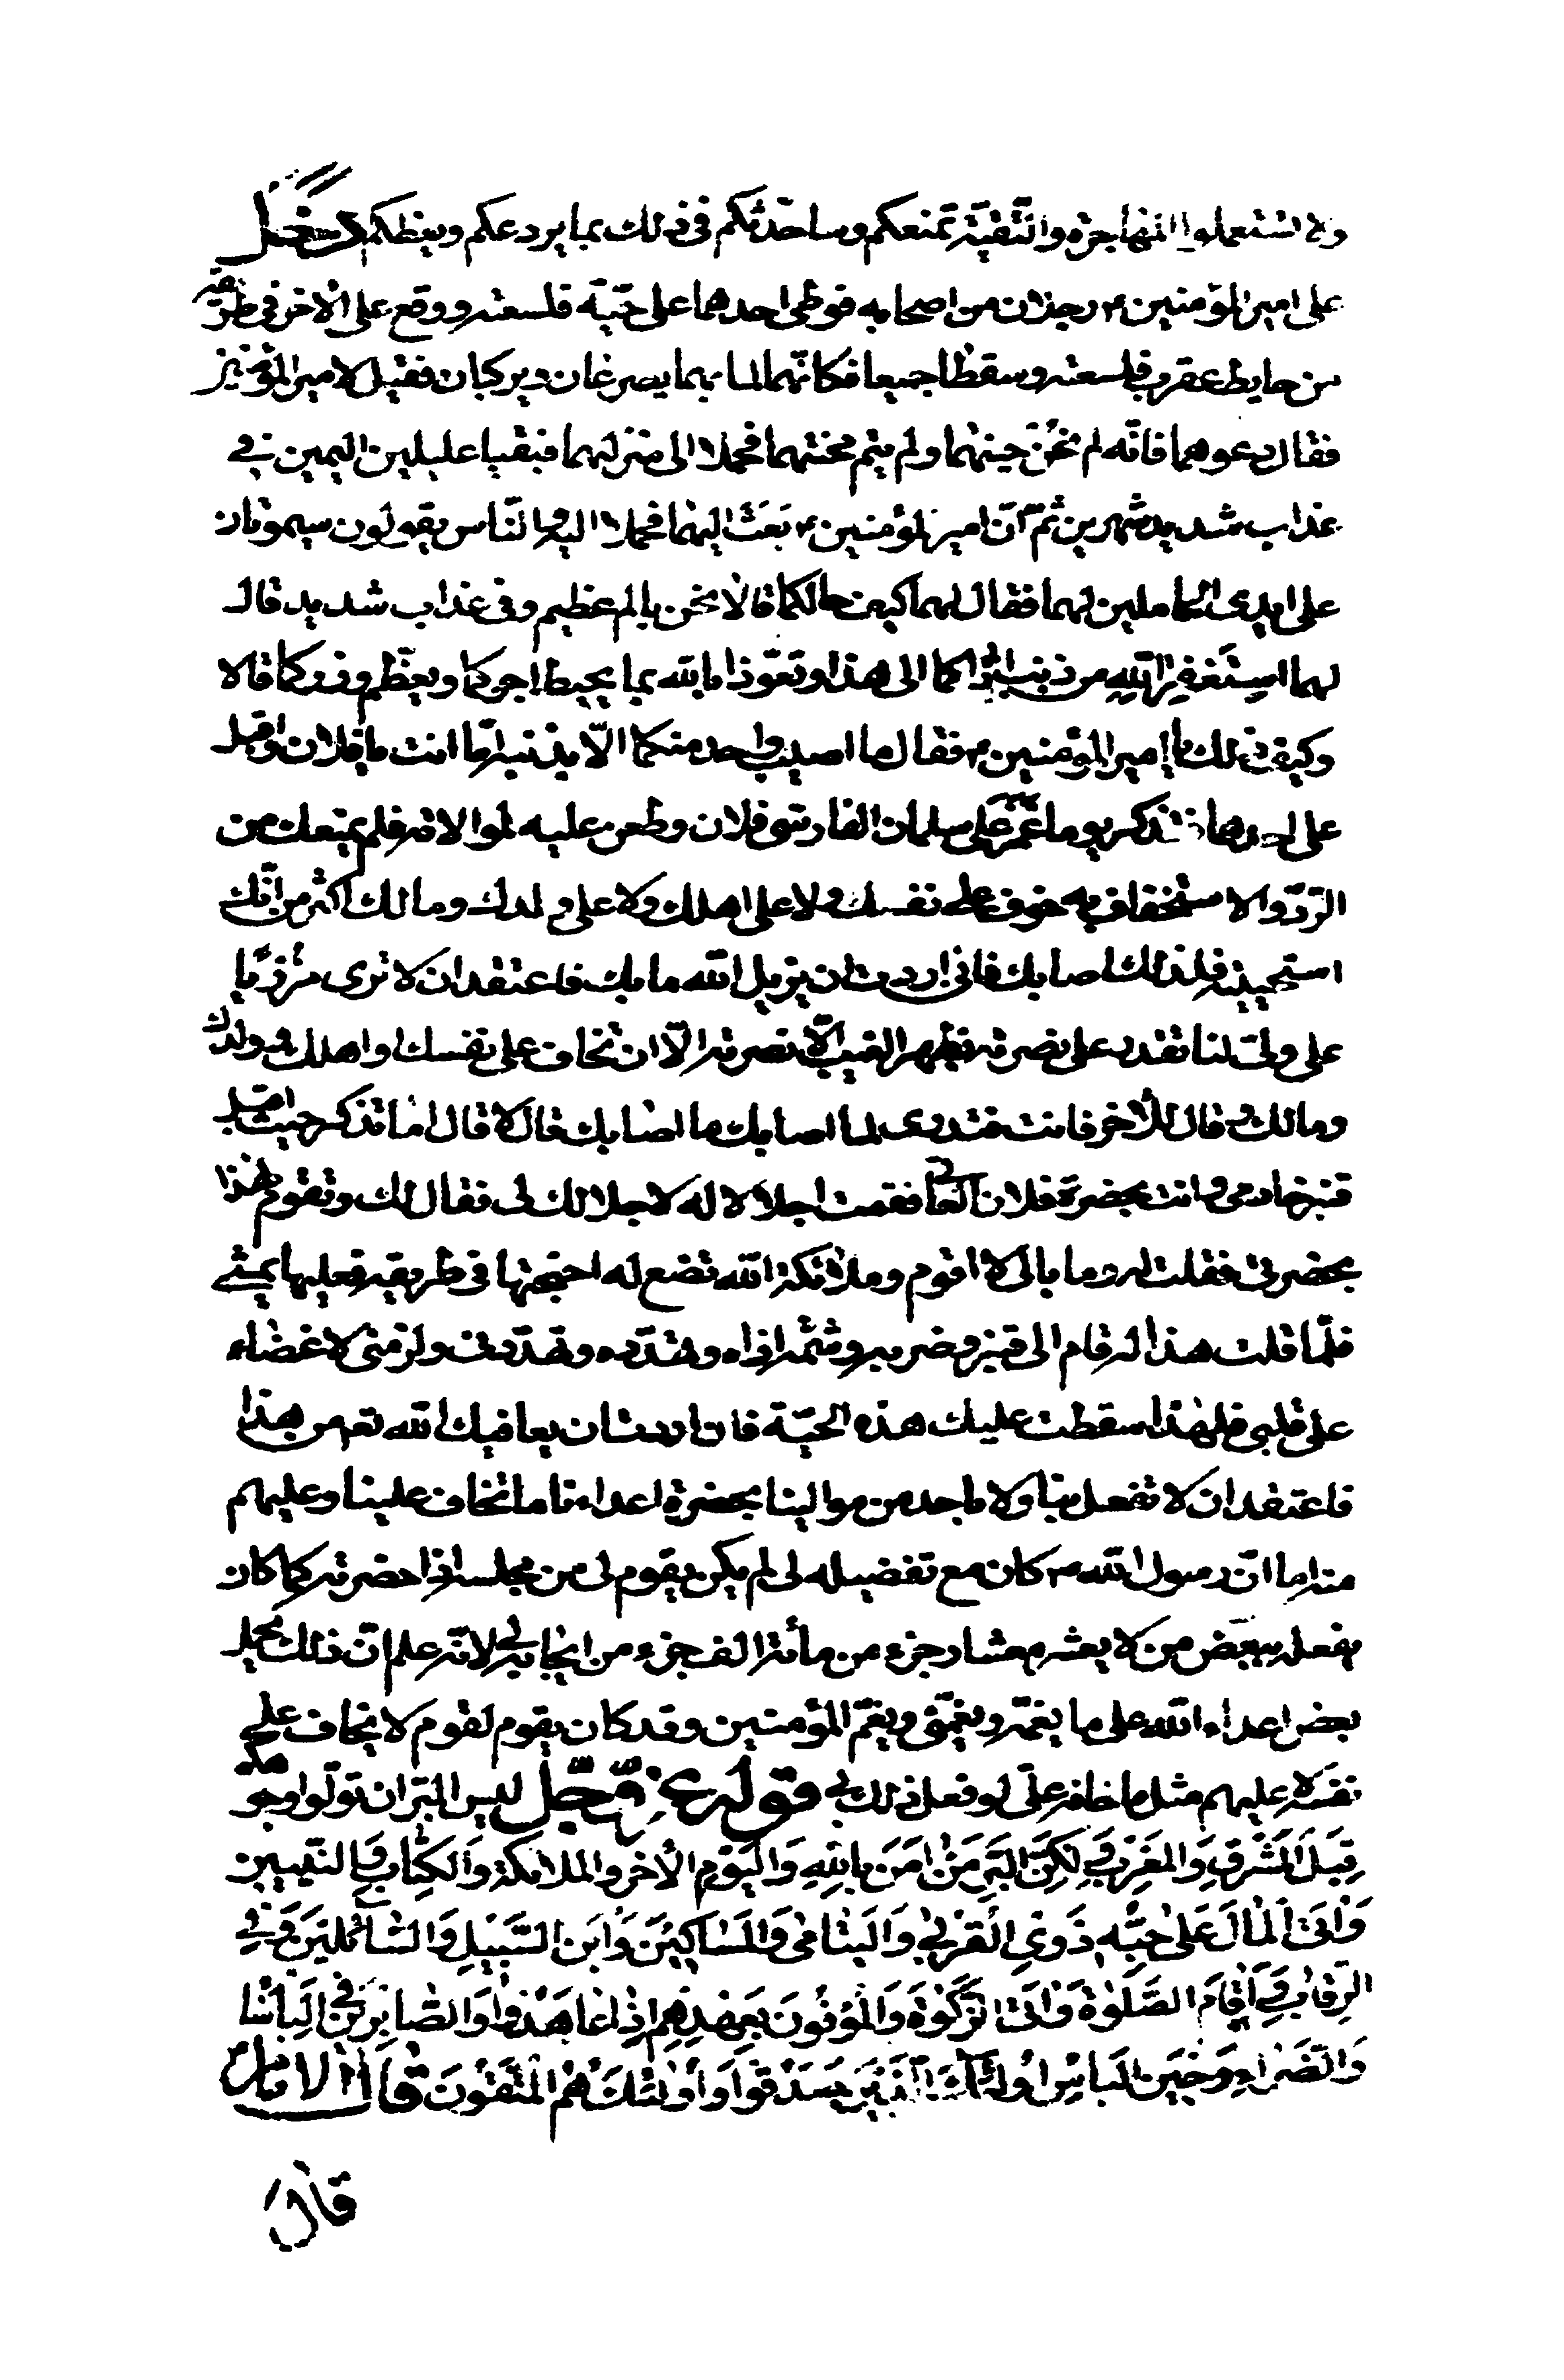 ولا تستعملوا المهاجرة والتّقيّة تمنعكم وساحدّثكم فى ذلك بما يردعكم ويعظكم دخل
على امير المؤمنين ؑ رجلان من اصحابه فوطى احدهما على حيّة فلسعته ووقع على الآخر فى طريقه
من حايط عقرب فلسعته وسقطا جميعا فكانّهما لما بهما يصرعان ويبكيان فقيل لامير المؤمنين
فقال دعوهما فانّه لم يحن حينهما ولم يتم محنتهما فحملا الى منزلهما فبقيا عليلين اليمين فى
عذاب شديد شهرين ثمّ انّ امير المؤمنين ؑ بعث اليهما فحملا اليه والنّاس يقولون سيموتان
على ايدى الحاملين لهما فقال لهما كيف حالكما قالا نحن بالم عظيم وفى عذاب شديد قال
لهما استغفر الله من ذنب اتاكما الى هذا وتعوّذا بالله مما يحبط اجركما ويعظّم وزركما قالا
وكيف ذلك يا امير المؤمنين ؑ فقال ما اصيب واحد منكما الّا بذنبه امّا انت يا فلان واقبل
على احدهما تذكر يوم غمز على سلمان الفارسى فلان وطعن عليه لموالاته فلم يمنعك من
الردّ والاستخفاف به خوف على نفسك ولا على اهلك ولا على ولدك ومالك اكثر من انّك
استحييته فلذلك اصابك فان اردت ان يزيل الله ما بك فاعتقد ان لا ترى مزرئا
على ولىّ لنا تقدر على نصرته بظهر الغيب الّا نصرته الّا ان تخاف على نفسك او اهلك وولدك
ومالك وقال للآخر فانت فتدرى لما اصابك ما اصابك قال لا قال اما تذكر حيث اقبل
قنبر خادمى وانت بحضرة فلان العاتى فقمت اجلالا له لاجلالك لى فقال لك وتقوم لهذا
بحضرتى فقلت له وما بالى لا اقوم وملائكة الله تضع له اجنحتها فى طريقه فعليها يمشى
فلمّا قلت هذا له قام الى قنبر وضربه وشتمه واذاه وتهدّده وتهدّدنى ولزمنى الاغضاء
على قلبى فلهذا سقطت عليك هذه الحيّة فان اردت ان يعافيك الله تعم من هذا
فاعتقد ان لا تفعل بنا ولا باحد من موالينا بحضرة اعدائنا ما تخاف علينا وعليهم
منه اما انّ رسول الله ؐ كان مع تفضيله لى لم يكن يقوم لى من مجلسه اذا حضرته كما كان
يفعله ببعض من لا يعشر معشار جزء من مأئة الف جزء من ايجابه لى لانّه علم انّ ذلك يحمل
بعض اعداء الله على ما يغمّه ويغمّنى ويغمّ المؤمنين وقد كان يقوم لقوم لا يخاف على
نفسه ولا عليهم مثل ما خافه علىّ لو فعل ذلك بى قوله عزّ وجلّ ليس البرّ ان تولّوا وجوهكم
قِبَلَ المَشْرِقِ وَالمَغْرِبِ وَلٰكِنَّ البِرَّ مَنْ اٰمَنَ بِاللهِ وَاليَوْمِ الاٰخر والملائكة وَالكِتابِ وَالنّبيين
وَاٰتَى المٰالَ عَلٰى حُبِّهٖ ذَوِى القُرْبىٰ وَاليَتٰامىٰ وَالمَسٰاكِينَ وَابْنَ السَّبِيلِ وَالسّٰائِلِينَ وَفِى
الرِّقٰابِ وَاَقٰامَ الصَّلٰوةَ وَاٰتَى الزَّكٰوةَ وَالمُوفُونَ بِعَهْدِهِمْ اِذٰا عٰاهَدُوا وَالصّٰابِرِينَ فِى البَأْسٰا
وَالضَّرّٰاءِ وَحِينَ البَأْسِ اُولٰئِكَ الَّذِينَ صَدَقُوا وَاُولٰئِكَ هُمُ المُتَّقُونَ قال الامام
قال